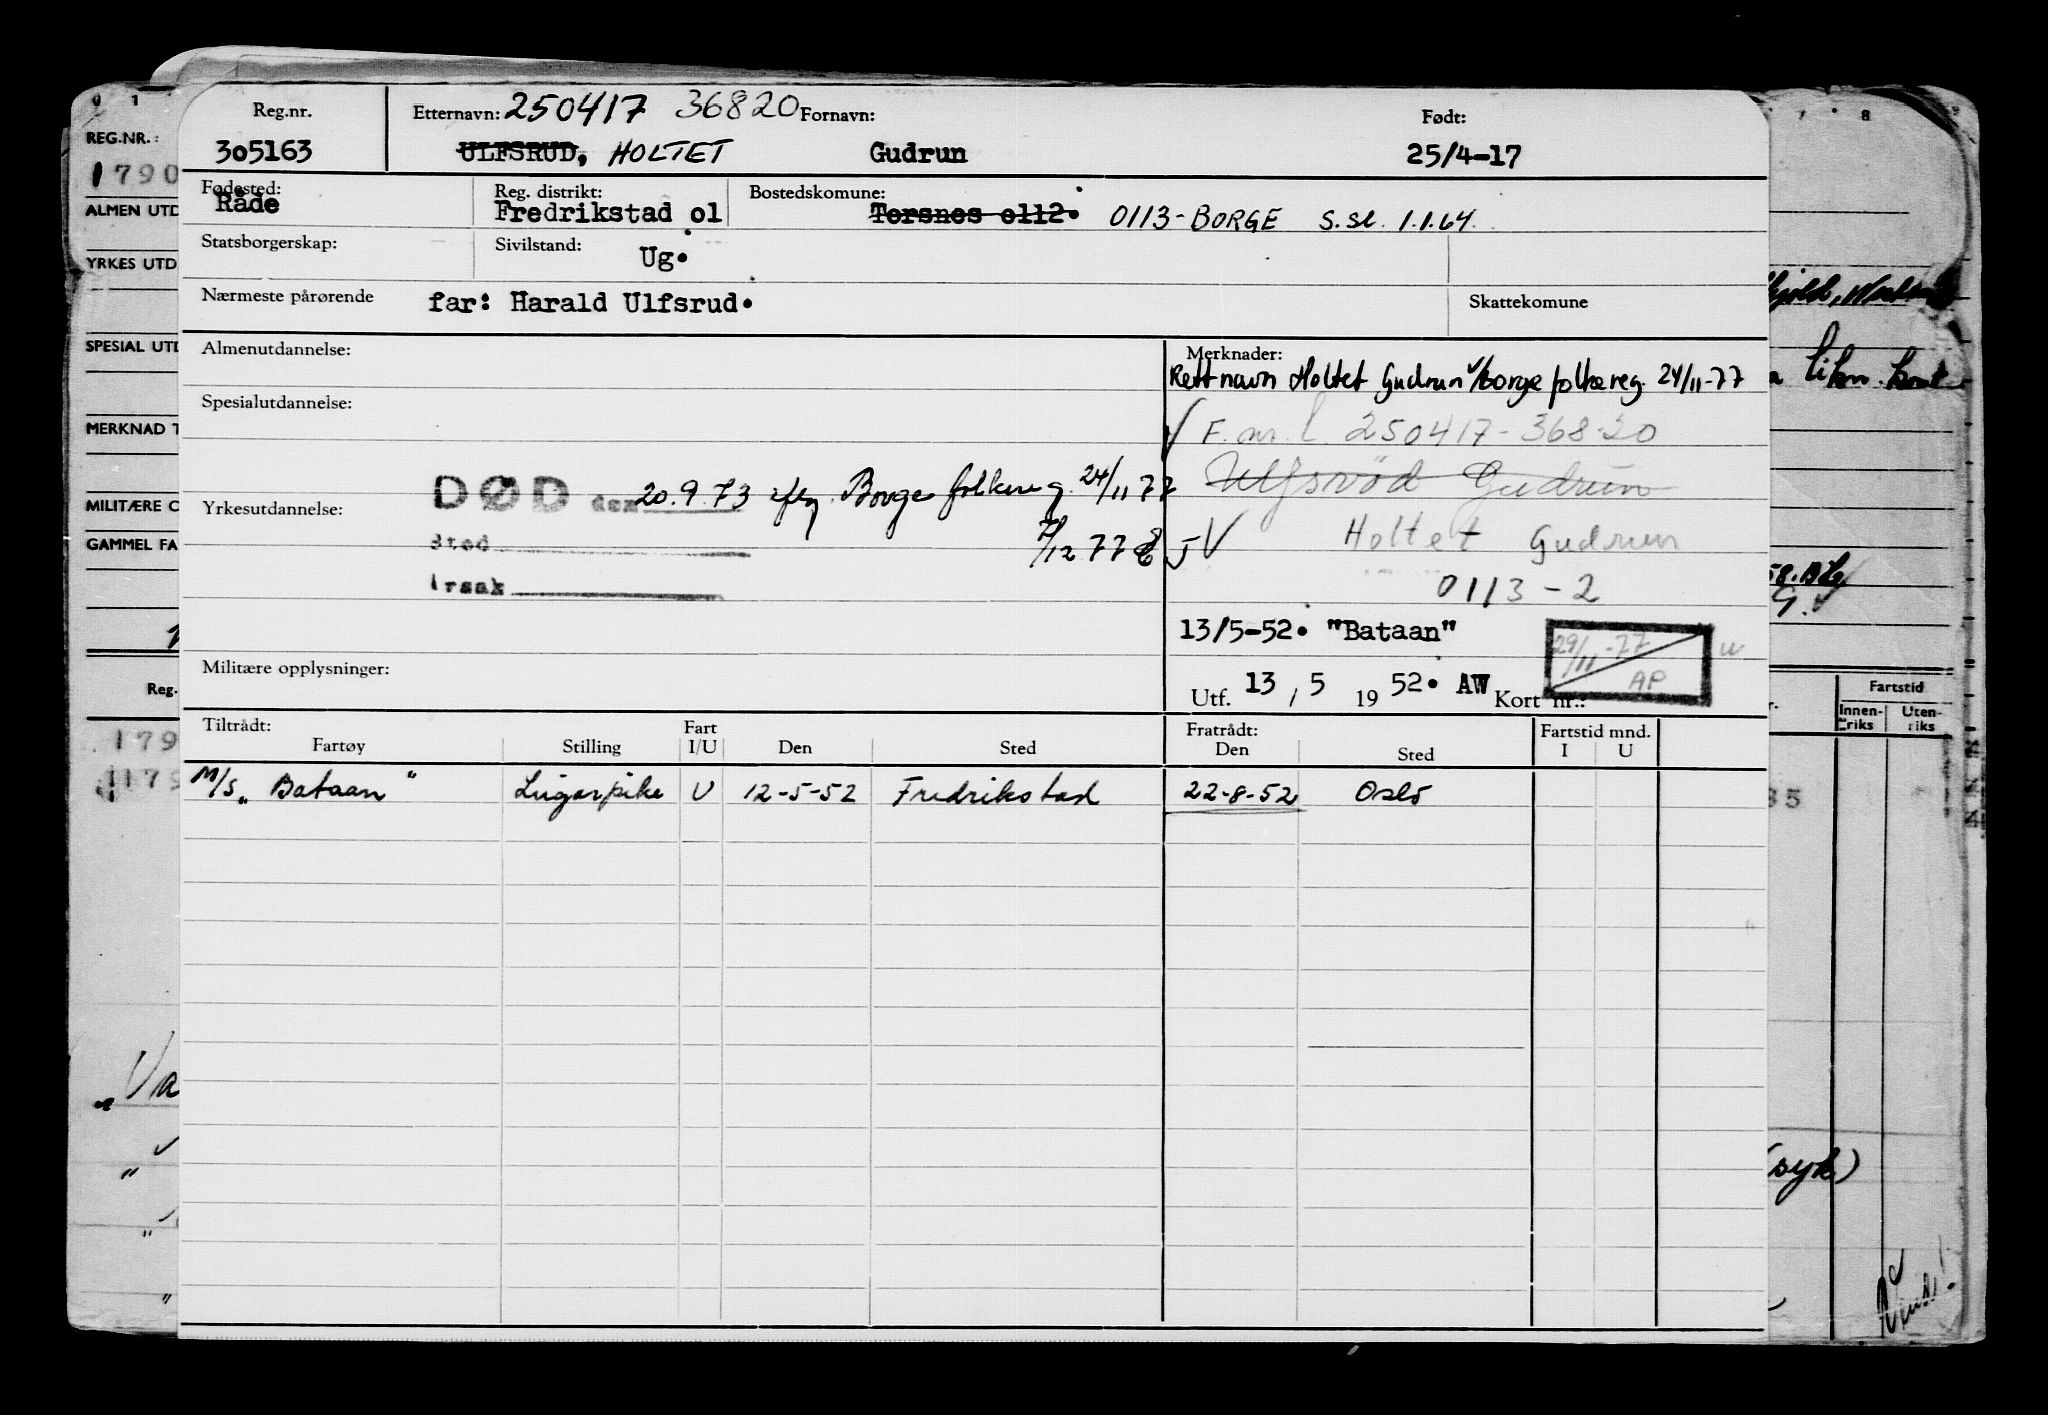 Reg.nr. Etternavn: 250417 36820 Fornavn: Født:
305163 ULFSRUD, HOLTET Gudrun 25/4-17
Fødested: Reg. distrikt: Bostedskomune:
Råde Fredrikstad 01 Torsnes 0112. 0113-BORGE S.sl. 1.1.64.
Statsborgerskap: Sivilstand: Ug.
Nærmeste pårørende far: Harald Ulfsrud. Skattekomune
Almenutdannelse:
Spesialutdannelse:
DØD den 20.9.73 iflg. Borge folkereg. 24/11 77
Yrkesutdannelse:
Sted 7/12 77
Årsak
Militære opplysninger:
Merknader:
Rett navn Holtet Gudrun v/Borge folkereg. 24/11-77
F.nr. 250417-36820
Ulfsrød Gudrun
Holtet Gudrun
0113-2
13/5-52. "Bataan"
29/11-77
AP
Utf. 13 / 5 19 52. AW Kort nr.:
Tiltrådt: Fart Fratrådt: Fartstid mnd.
Fartøy Stilling I/U Den Sted Den Sted I U
M/S "Bataan" Lugarpike U 12-5-52 Fredrikstad 22-8-52 Oslo
REG.NR.:
1790
ALMEN UTD
YRKES UTD
SPESIAL UTD
MERKNAD T
MILITÆRE O
GAMMEL FA
Reg.
179
179
likn. kont
Fartstid
Innen-riks Uten-riks
35
(syk)